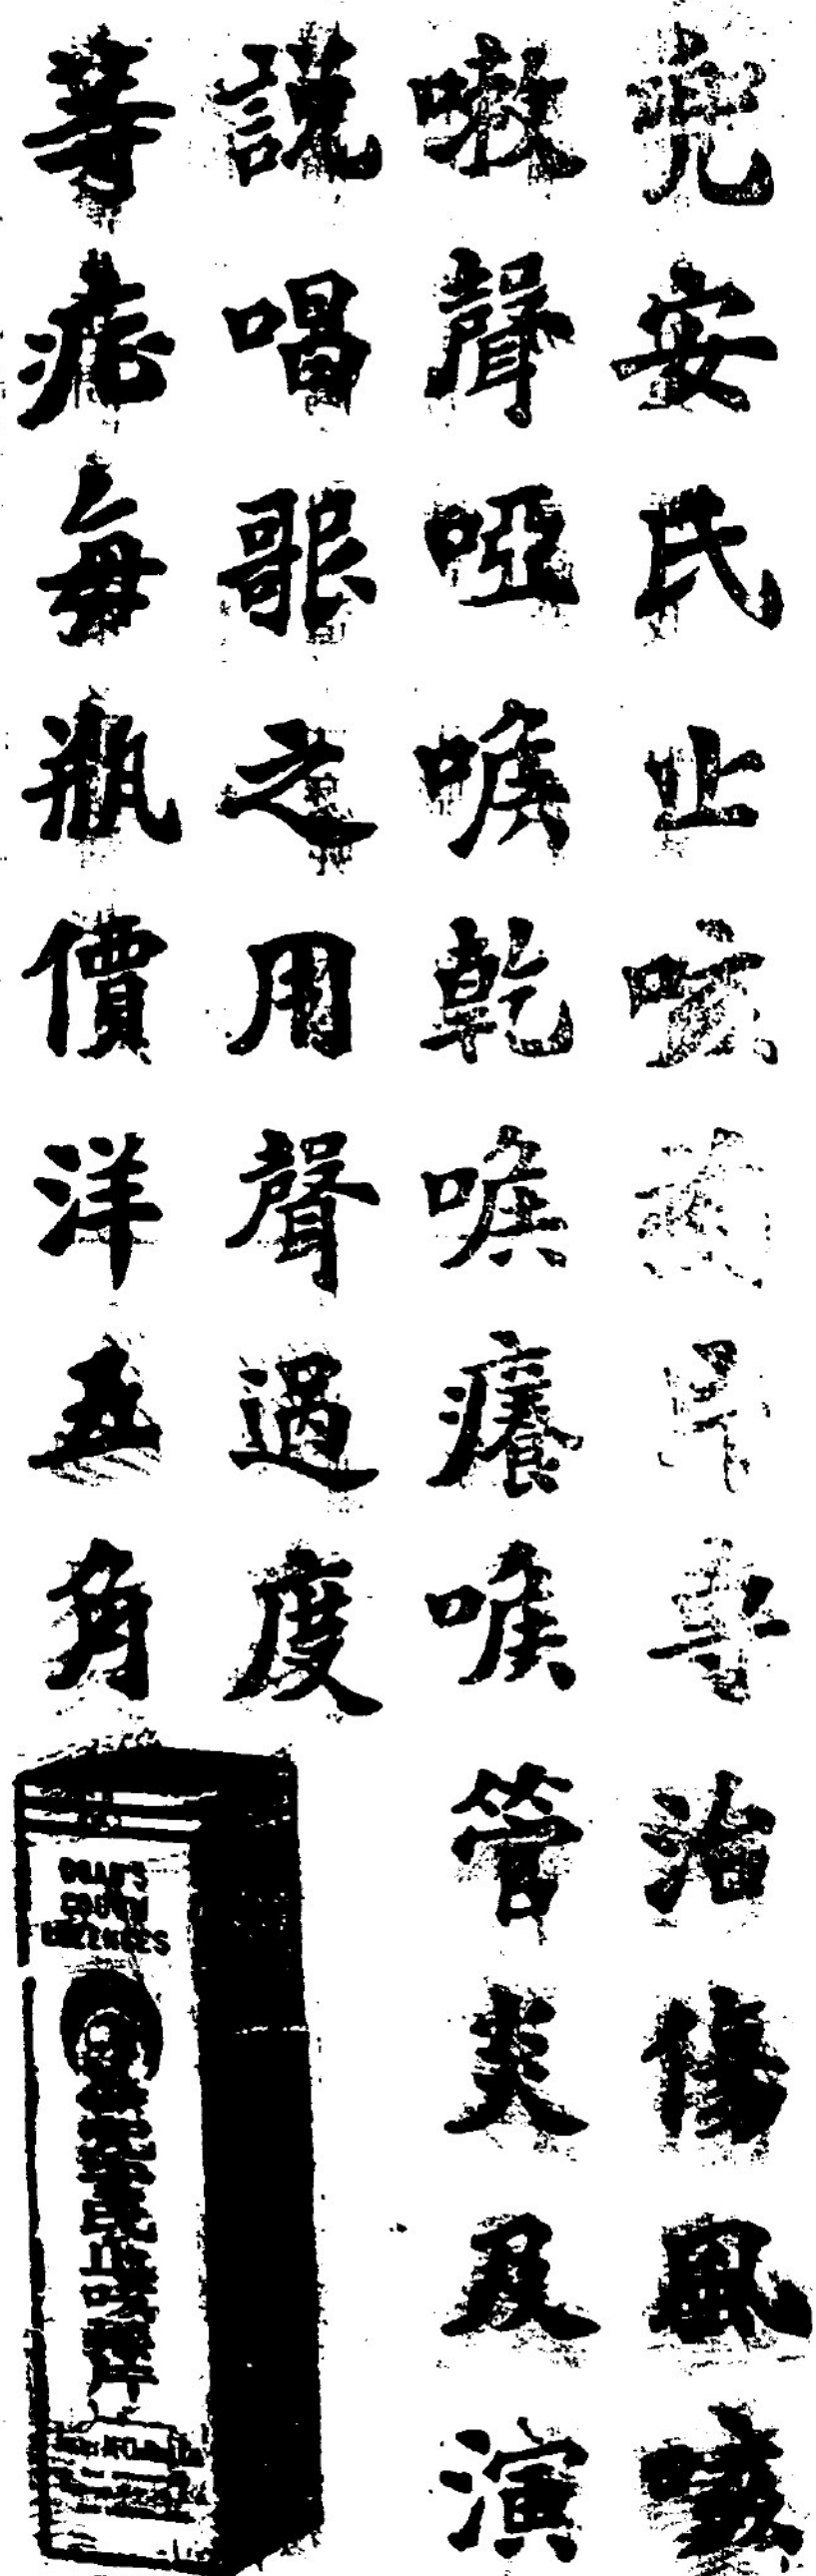 兜安氏止咳藥片專治傷風咳
嗽聲啞喉乾喉癢喉管炎及演
説唱歌之用聲過度
等症每瓶價洋五角
DOAN'S
COUGH
LOZENGES
兜安氏止咳藥片